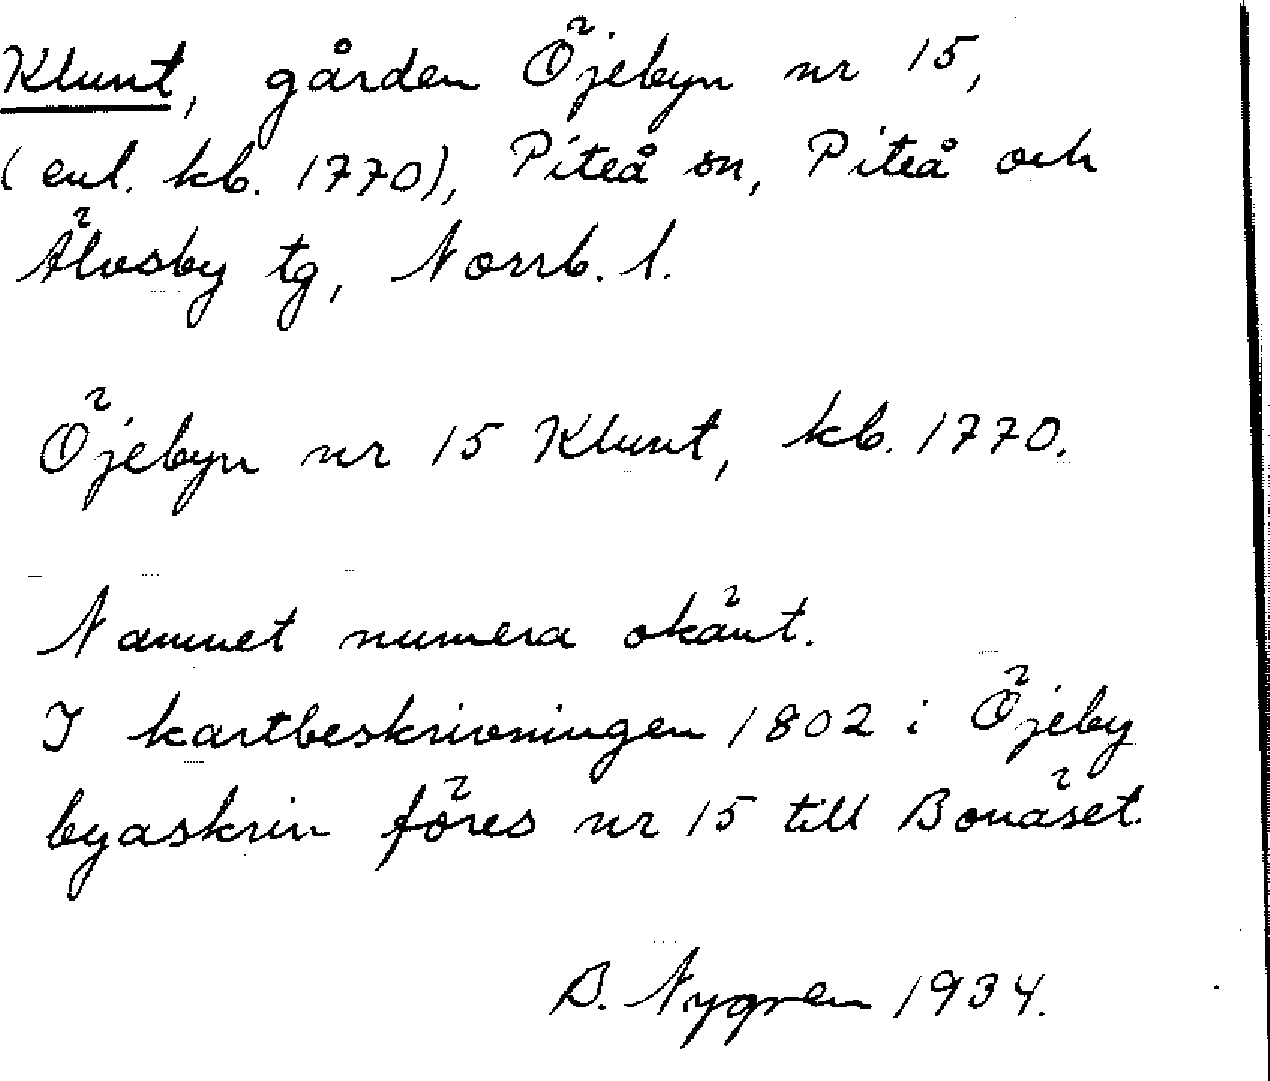 Klunt, gården Öjebyn nr 15,
(enl. kb. 1770), Piteå sn, Piteå och
Älvsby tg, Norrb. l.
Öjebyn nr 15 Klunt, kb. 1770.
Namnet numera okänt.
I kartbeskrivningen 1802 i Öjeby
byaskrin föres nr 15 till Bonäset.
B. Nygren 1934.